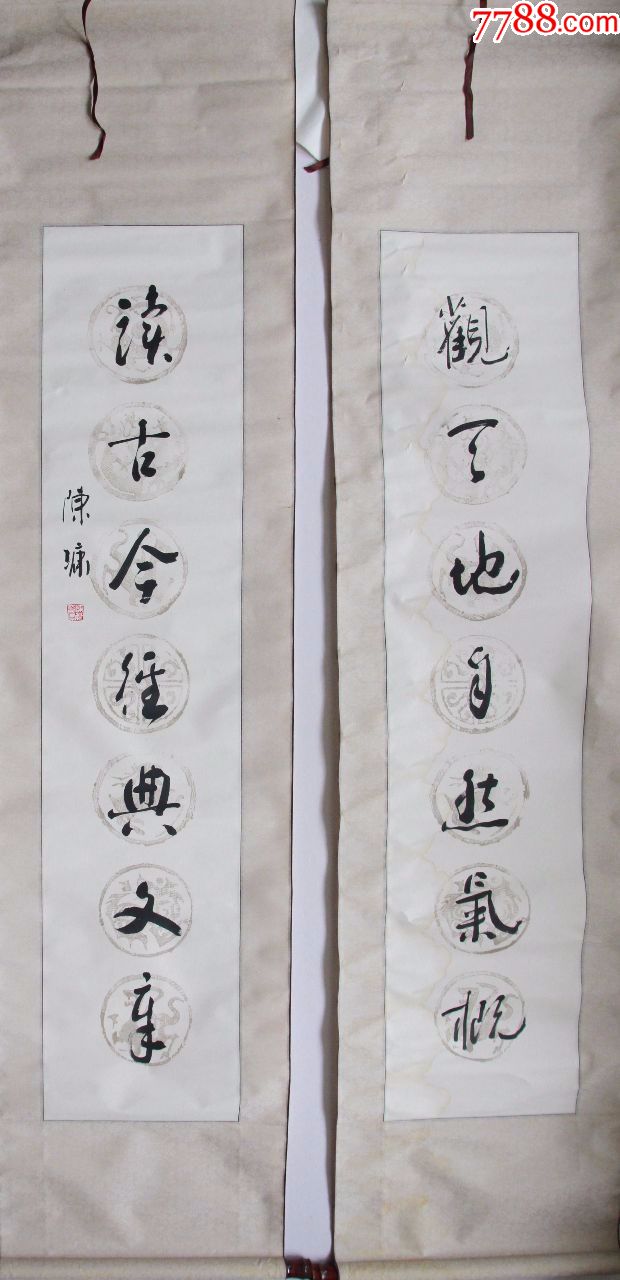 7788.com
觀天地自然氣概
讀古今經典文章
陳慷